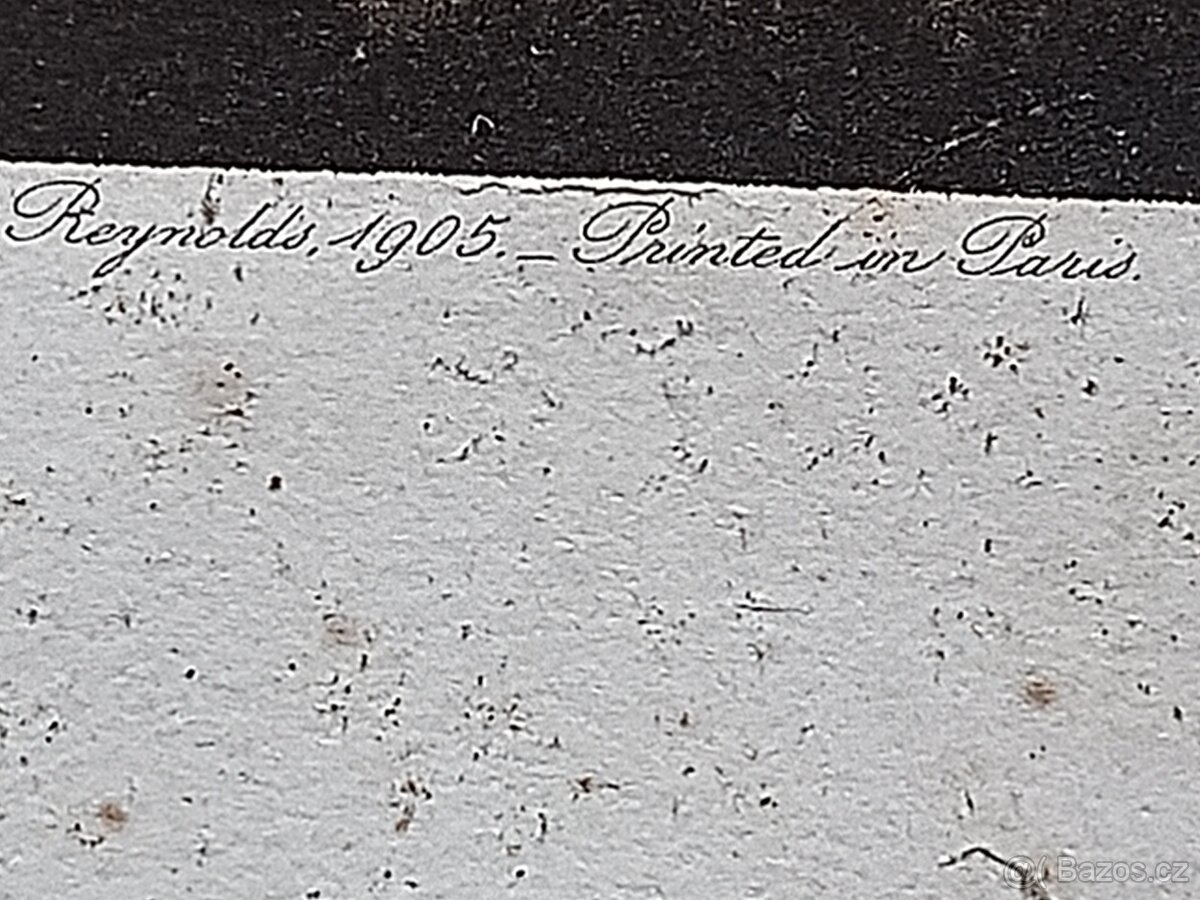 Reynolds, 1905. – Printed in Paris.
Bazos.cz